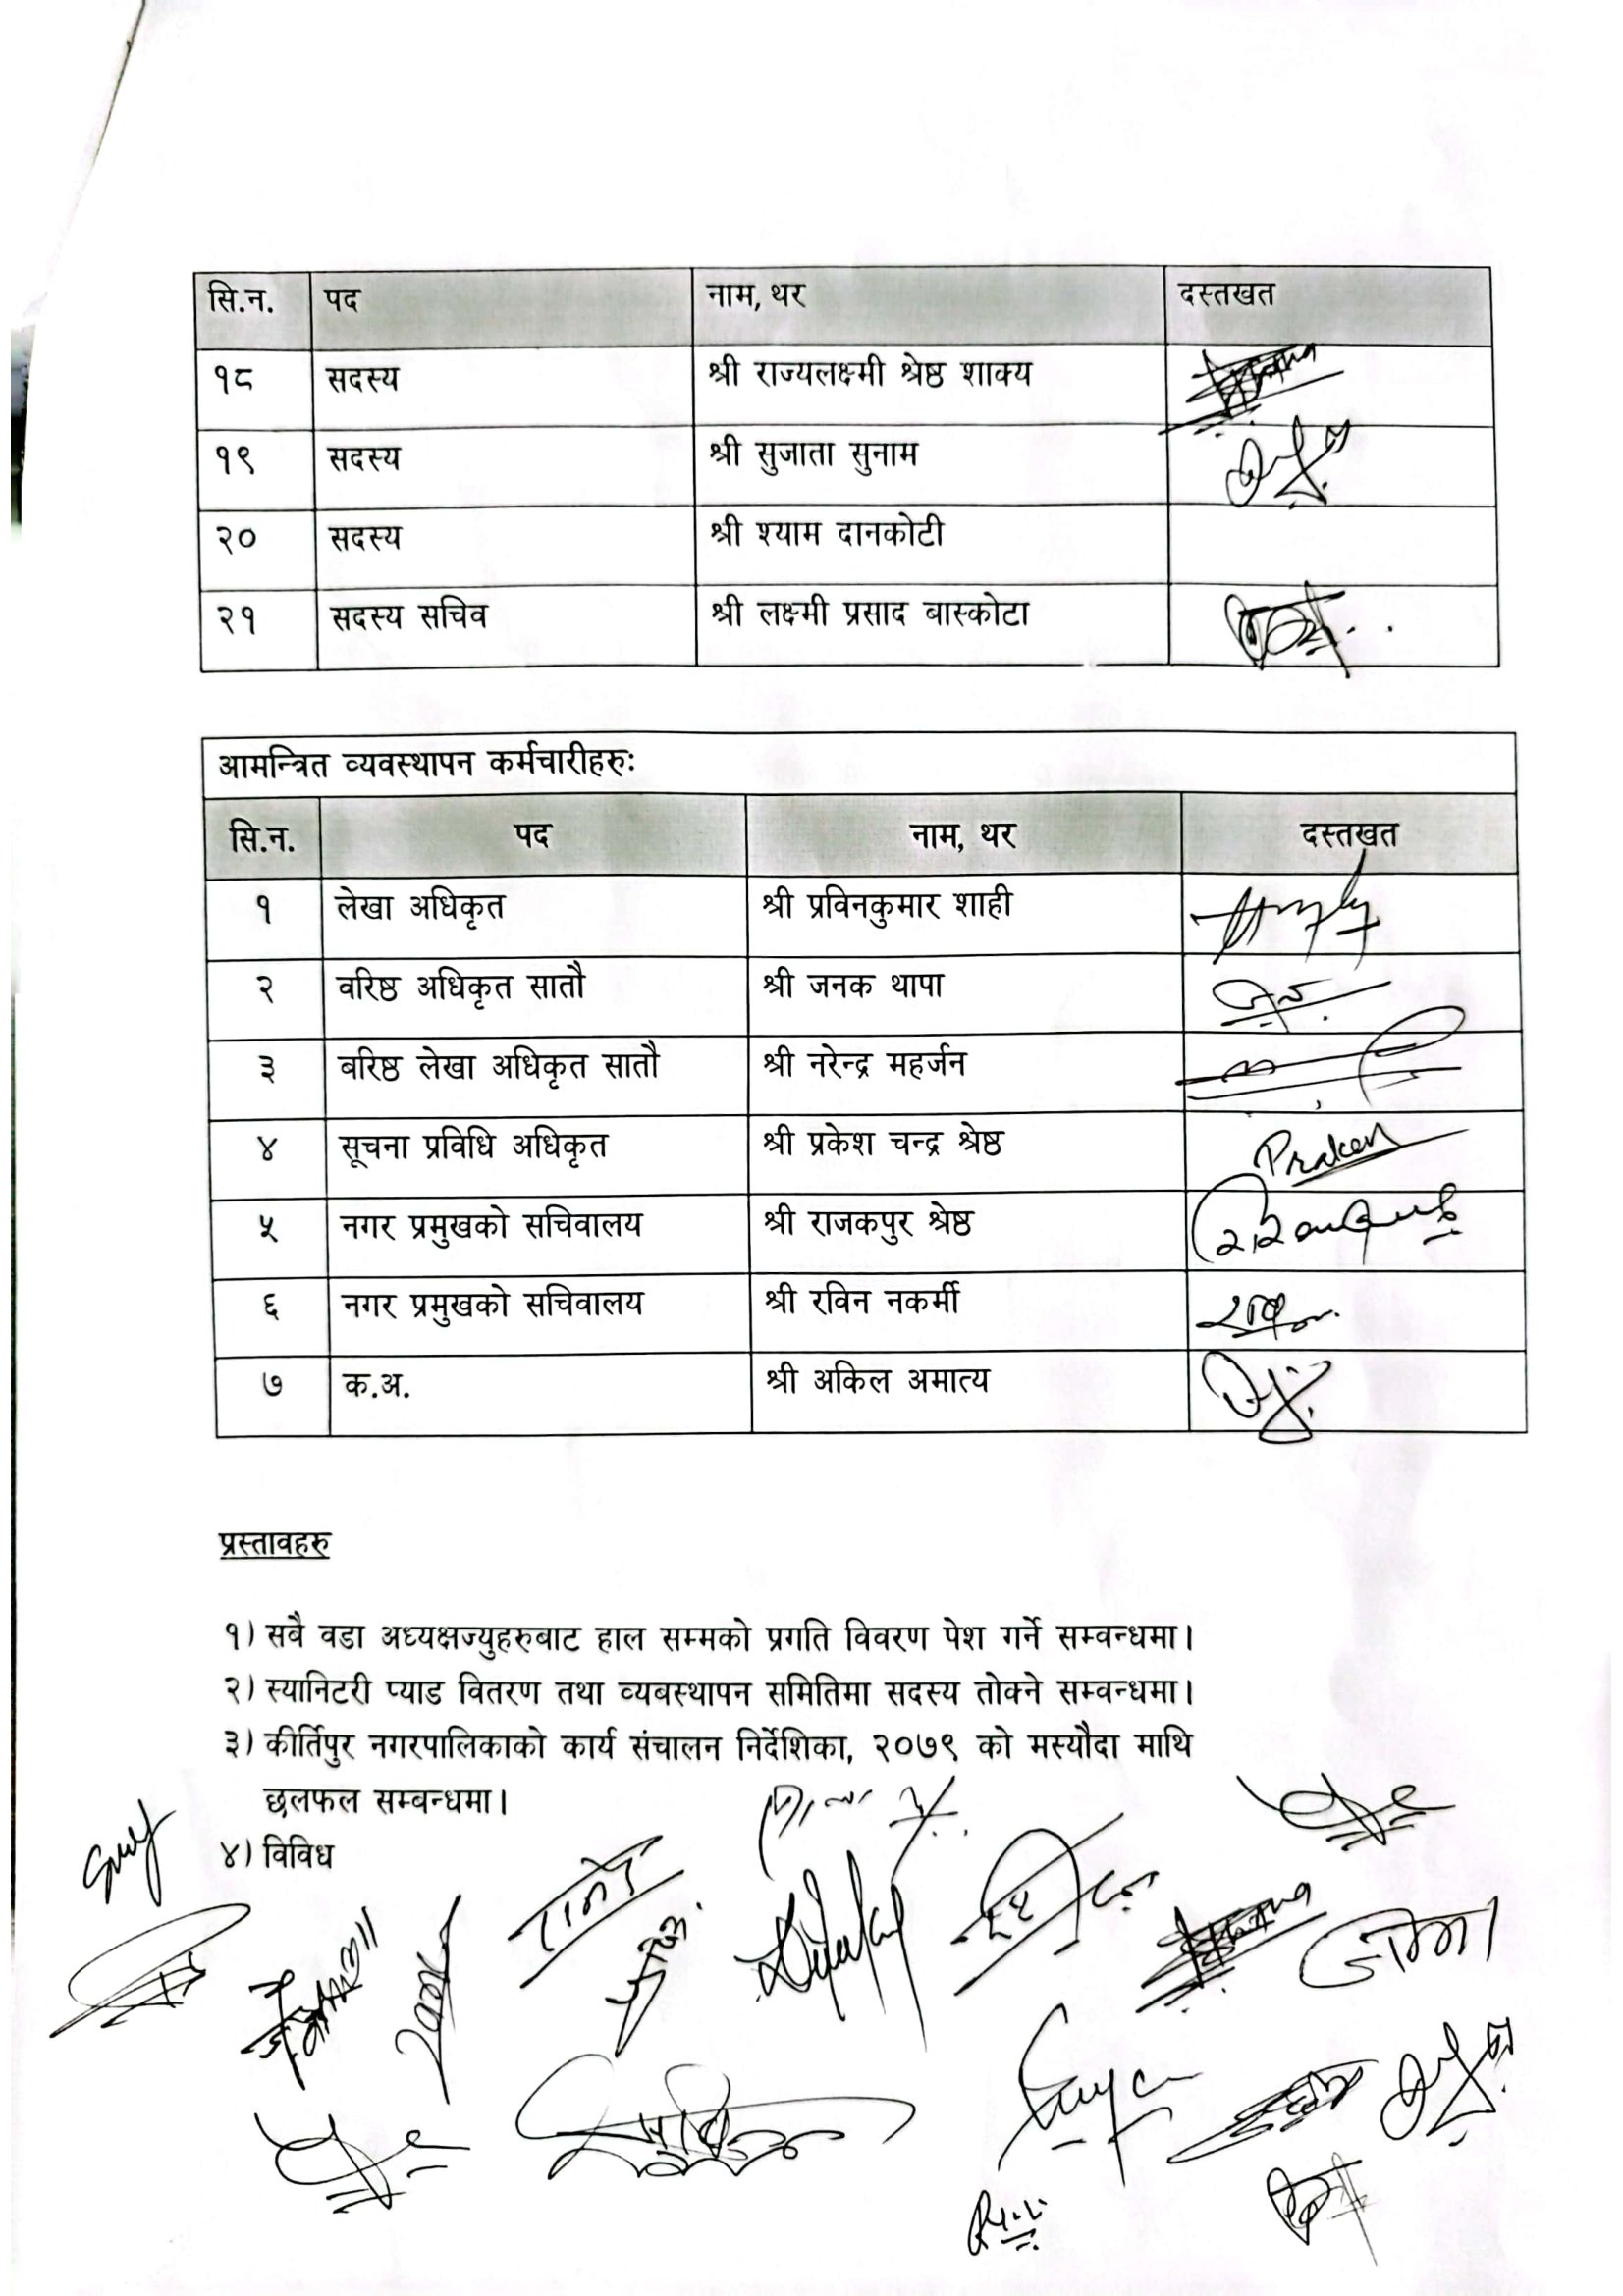 सि.न. पद नाम, थर दस्तखत
१८ सदस्य श्री राज्यलक्ष्मी श्रेष्ठ शाक्य
१९ सदस्य श्री सुजाता सुनाम
२० सदस्य श्री श्याम दानकोटी
२१ सदस्य सचिव श्री लक्ष्मी प्रसाद बास्कोटा
आमन्त्रित व्यवस्थापन कर्मचारीहरुः
सि.न. पद नाम, थर दस्तखत
१ लेखा अधिकृत श्री प्रविनकुमार शाही
२ वरिष्ठ अधिकृत सातौ श्री जनक थापा
३ बरिष्ठ लेखा अधिकृत सातौ श्री नरेन्द्र महर्जन
४ सूचना प्रविधि अधिकृत श्री प्रकेश चन्द्र श्रेष्ठ
५ नगर प्रमुखको सचिवालय श्री राजकपुर श्रेष्ठ
६ नगर प्रमुखको सचिवालय श्री रविन नकर्मी
७ क.अ. श्री अकिल अमात्य
प्रस्तावहरु
१) सबै वडा अध्यक्षज्युहरुबाट हाल सम्मको प्रगति विवरण पेश गर्ने सम्वन्धमा।
२) स्यानिटरी प्याड वितरण तथा व्यबस्थापन समितिमा सदस्य तोक्ने सम्वन्धमा।
३) कीर्तिपुर नगरपालिकाको कार्य संचालन निर्देशिका, २०७९ को मस्यौदा माथि
छलफल सम्बन्धमा।
४) विविध